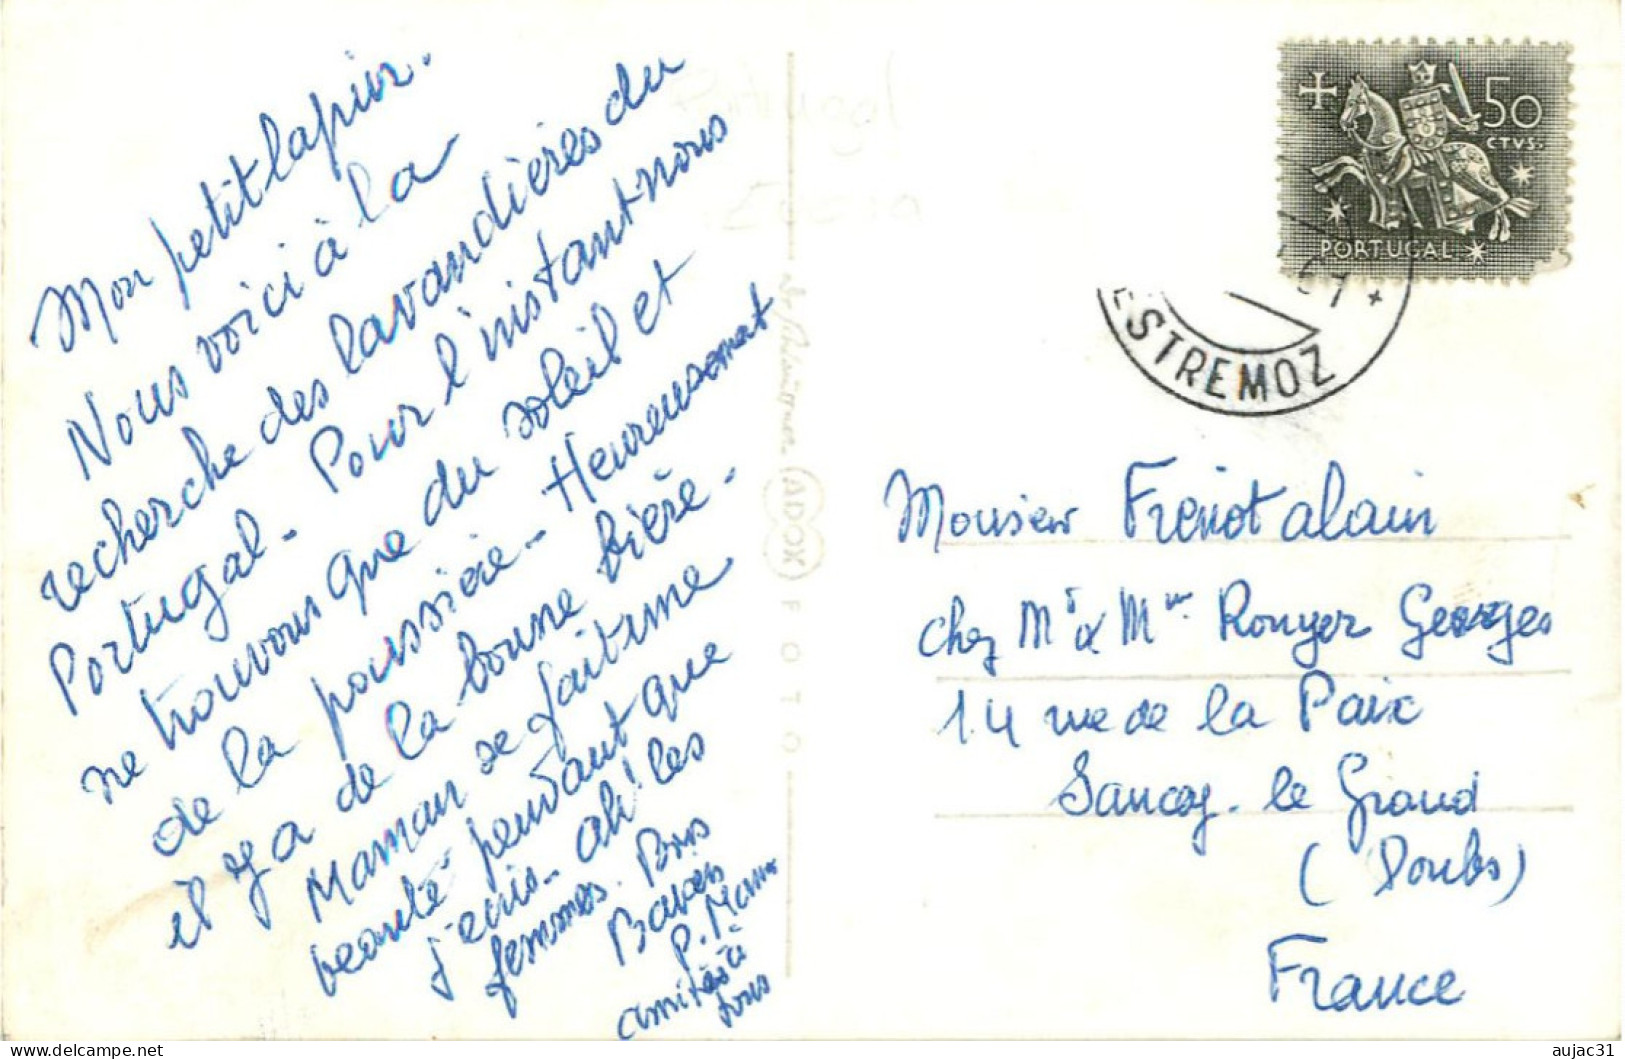 Mon petit lapin.
Nous voici à la
recherche des lavandières du
Portugal - Pour l'instant nous
ne trouvons que du soleil et
de la poussière - Heureusement
il y a de la bonne bière -
Maman se fait une
beauté pendant que
j'écris - ah! les
femmes. Bons
Baisers
P. Mamn
amitiés à
tous
Portugal
ADOX FOTO
50
CTVS.
PORTUGAL
61
ESTREMOZ
Monsieur Frenot alain
chez Mr & Mme Rouyer Georges
14 rue de la Paix
Sancey-le Grand
(Doubs)
France
delcampe.net
aujac31